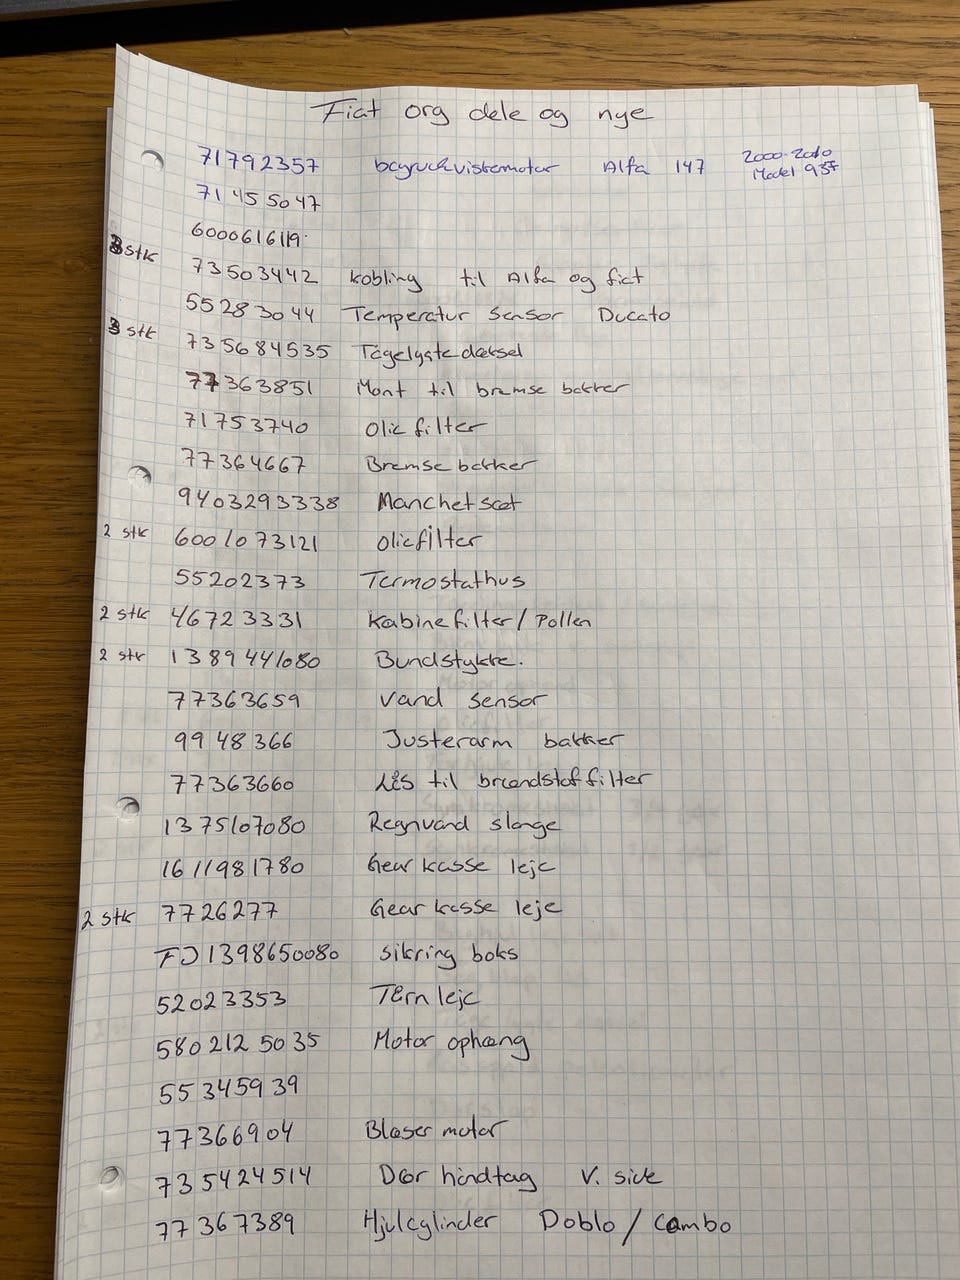 Fiat org dele og nye
71792357 bagrudeviskemotor Alfa 147 2000-2010 Model 937
71455047
6000616119
3 stk 73503442 kobling til Alfa og fiat
55283044 Temperatur Sensor Ducato
3 stk 735684535 Tågelygte dæksel
77363851 Mont til bremse bakker
71753740 Olie filter
77364667 Bremse bakker
9403293338 Manchet sæt
2 stk 6001073121 oliefilter
55202373 Termostathus
2 stk 46723331 Kabinefilter/Pollen
2 stk 1389441080 Bundstykke.
77363659 Vand sensor
9948366 Justerarm bakker
77363660 Lås til brændstof filter
1375107080 Regnvand slange
1611981780 Gear kasse leje
2 stk 7726277 Gear kasse leje
FD1398650080 sikring boks
52023353 Tårn leje
5802125035 Motor ophæng
55345939
77366904 Blæser motor
735424514 Dør håndtag V. side
77367389 Hjulcylinder Doblo / Combo